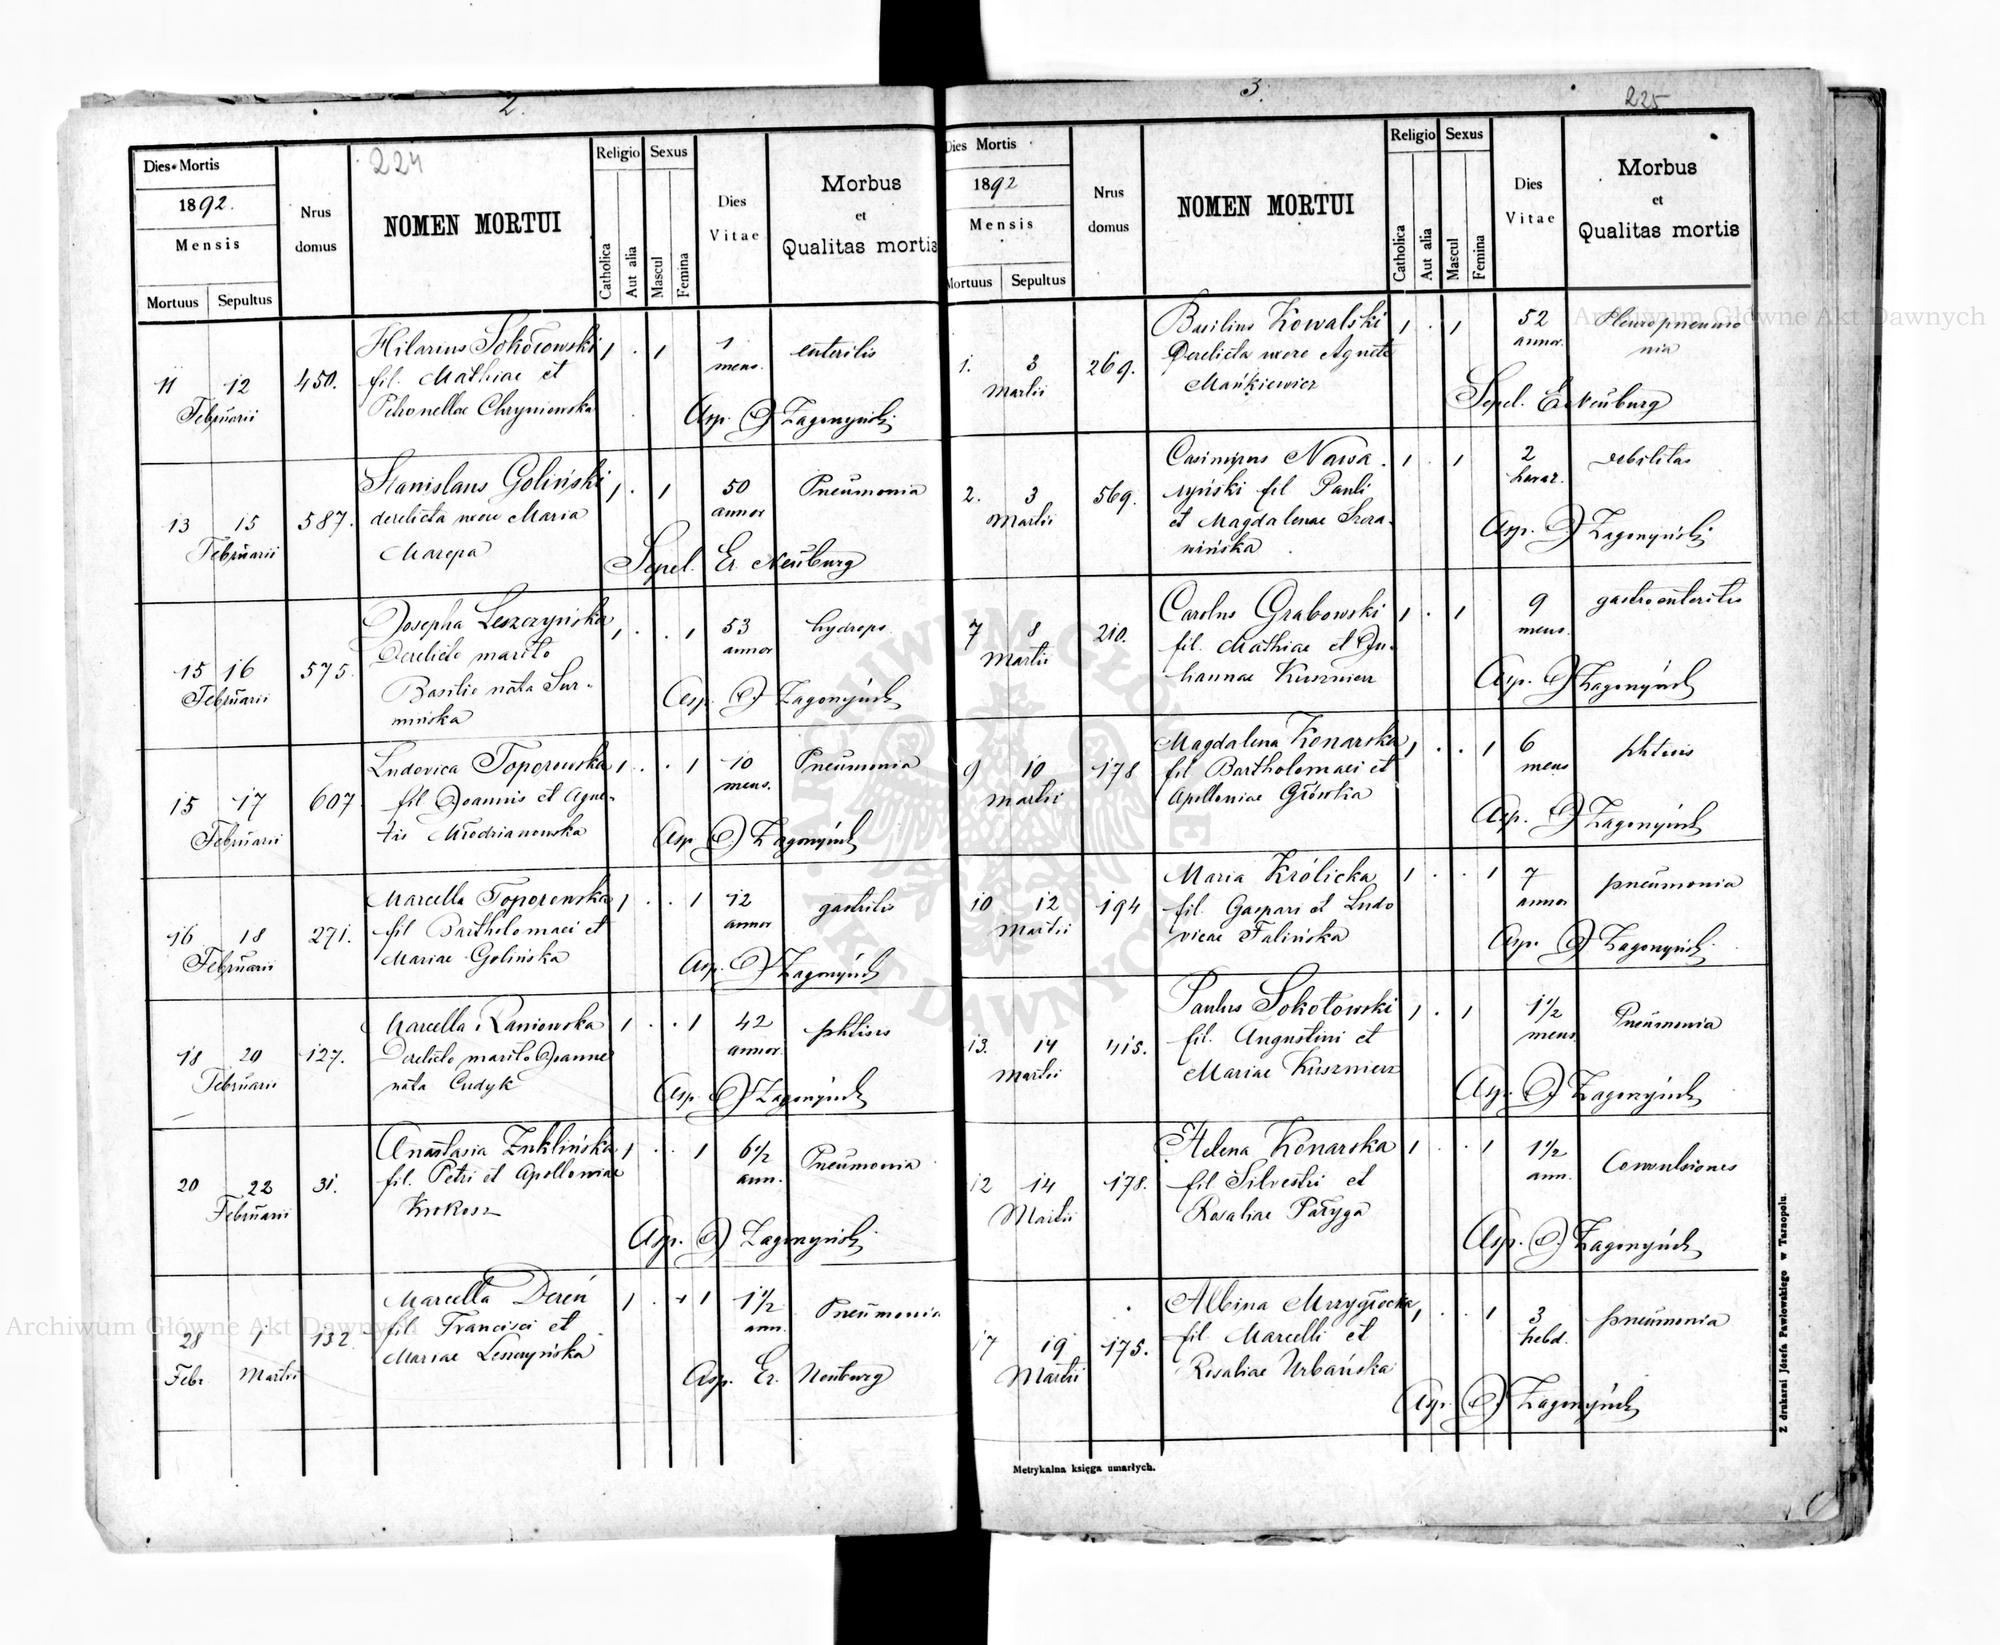 2.
224
Dies Mortis
1892.
Mensis
Mortuus
Sepultus
Nrus
domus
NOMEN MORTUI
Religio
Catholica
Aut alia
Sexus
Mascul
Femina
Dies
Vitae
Morbus
et
Qualitas mortis
11 12
Februarii
450.
Hilarius Sokołowski
fil. Mathiae et
Petronellae Chryniewska
1 . 1
1
mens.
enteritis
Asp. Zagorzyński
13 15
Februarii
587.
Stanislaus Goliński
derelicta uxore Maria
Marepa
1 . 1
50
annor
Pneumonia
Sepel. Er. Neuburg
15 16
Februarii
575.
Josepha Leszczyńska
Derelicto marito
Basilio nata Sur-
mińska
1 . . 1
53
annor
hydrops
Asp. Zagorzyński
15 17
Februarii
607
Ludovica Toporowska
fil Joannis et Agne-
tis Młodzianowska
1 . . 1
10
mens.
Pneumonia
Asp. Zagorzyński
16 18
Februarii
271.
Marcella Toporowska
fil Bartholomaei et
Mariae Golińska
1 . . 1
12
annor
gastritis
Asp. Zagorzyński
18 20
Februarii
127.
Marcella Raniowska
Derelicto marito Joanne
nata Cudyk
1 . . 1
42
annor.
phtisis
Asp. Zagorzyński
20 22
Februarii
31.
Anastasia Żuklińska
fil. Petri et Apolloniae
Krokosz
1 . . 1
6 1/2
ann.
Pneumonia
Asp. Zagorzyński
28 1
Febr. Martii
132
Marcella Dereń
fil Francisci et
Mariae Leszczyńska
1 . 1
1 1/2
ann.
Pneumonia
Asp. Er. Neuburg
3.
225
Dies Mortis
1892
Mensis
Mortuus
Sepultus
Nrus
domus
NOMEN MORTUI
Religio
Catholica
Aut alia
Sexus
Mascul
Femina
Dies
Vitae
Morbus
et
Qualitas mortis
1. 3
Martii
269.
Basilius Kowalski
Derelicta uxore Agnete
Mańkiewicz
1 . 1
52
annor.
Pleuropneumo
nia
Sepel. Er Neuburg
2. 3
Martii
569.
Casimirus Nawa-
rzyński fil Pauli
et Magdalenae Szera-
nińska
1 . 1
2
horar.
debilitas
Asp. Zagorzyński
7 8
Martii
210.
Carolus Grabowski
fil. Mathiae et Ju-
hannae Kuszmierz
1 . 1
9
mens.
gastroenteritis
Asp. Zagorzyński
9 10
Martii
178
Magdalena Konarska
fil Bartholomaei et
Apolloniae Główka
1 . . 1
6
mens
phtisis
Asp. Zagorzyński
10 12
Martii
194
Maria Królicka
fil. Gaspari et Ludo
vicae Falińska
1 . . 1
7
annor
pneumonia
Asp. Zagorzyński
13. 14
Martii
415.
Paulus Sokołowski
fil. Augustini et
Mariae Kuszmierz
1 . 1
1 1/2
mens
Pneumonia
Asp. Zagorzyński
12 14
Martii
178.
Helena Konarska
fil Silvestri et
Rosaliae Paryga
1 . . 1
1 1/2
ann.
Convulsiones
Asp. Zagorzyński
17 19
Martii
175.
Albina Mrzygłocka
fil. Marcelli et
Rosaliae Urbańska
1 . . 1
3
hebd.
pneumonia
Asp. Zagorzyński
Metrykalna księga umarłych.
Z drukarni Józefa Pawłowskiego w Tarnopolu.
Archiwum Główne Akt Dawnych
Archiwum Główne Akt Dawnych
ARCHIWUM GŁÓWNE AKT DAWNYCH